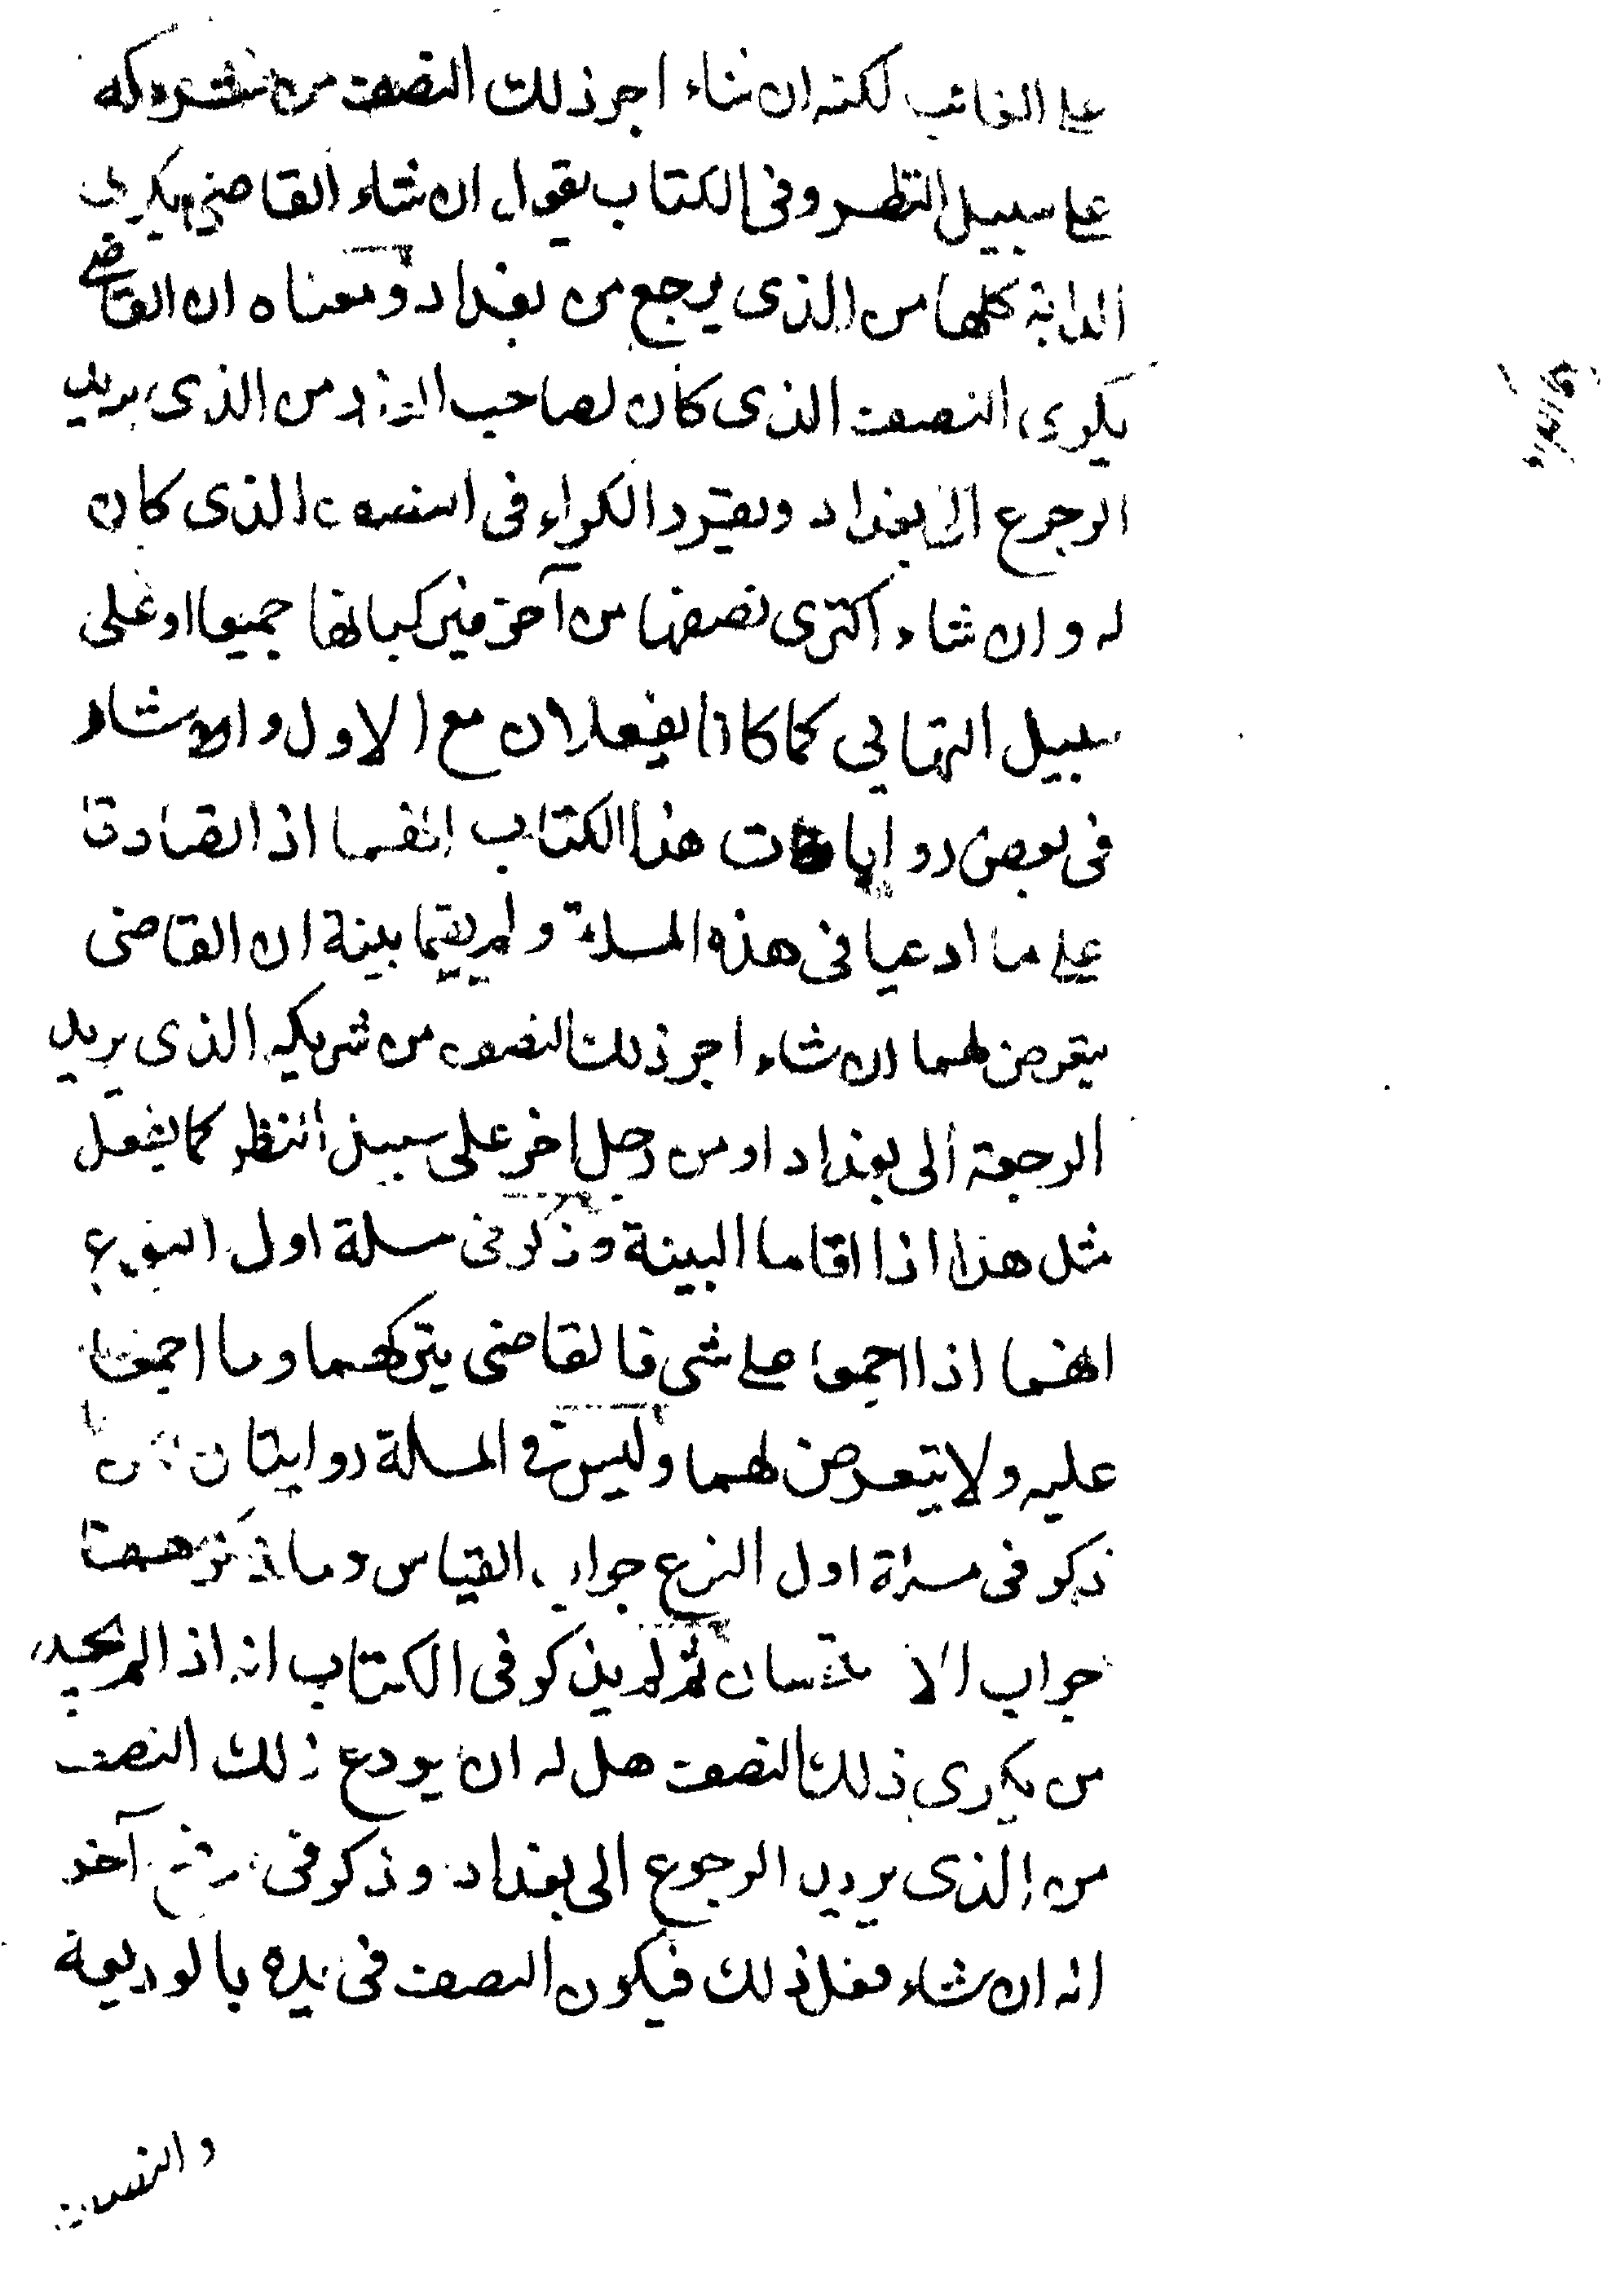 على الغائب لكنه ان شاء اجر ذلك النصف من شريكه
على سبيل النظر وفى الكتاب يقول ان شاء القاضى يكرى
الدابة كلها من الذى يرجع من بغداد ومعناه ان القاضى
يكرى النصف الذى كان لصاحب من الذى يريد
الرجوع الى بغداد ويقرر الكراء فى النصف الذى كان
له وان شاء اكترى نصفها من آخر فيركبانها جميعا او على
سبيل التهايى كما كانا يفعلان مع الاول وان شاء
فى بعض روايات هذا الكتاب انهما اذا تصادقا
على ما ادعيا فى هذه المسلة ولم يقيما بينة ان القاضى
يتعرض لهما ان شاء اجر ذلك النصف من شريكه الذى يريد
الرجعة الى بغداد او من رجل اخر على سبيل النظر كما يفعل
مثل هذا اذا اقاما البينة وذكر فى مسلة اول النوع
انهما اذا اجمعا على شى فالقاضى يتركهما وما اجمعا
عليه ولا يتعرض لهما وليس فى المسلة روايتان
ذكر فى مسلة اول النوع جواب القياس وما ذكر ههنا
جواب الاستحسان ثم لم يذكر فى الكتاب انه اذا لم يجد
من يكرى ذلك النصف هل له ان يودع ذلك النصف
من الذى يريد الرجوع الى بغداد وذكر فى موضع آخر
انه ان شاء فعل ذلك فيكون النصف فى يده بالوديعة
والنصف